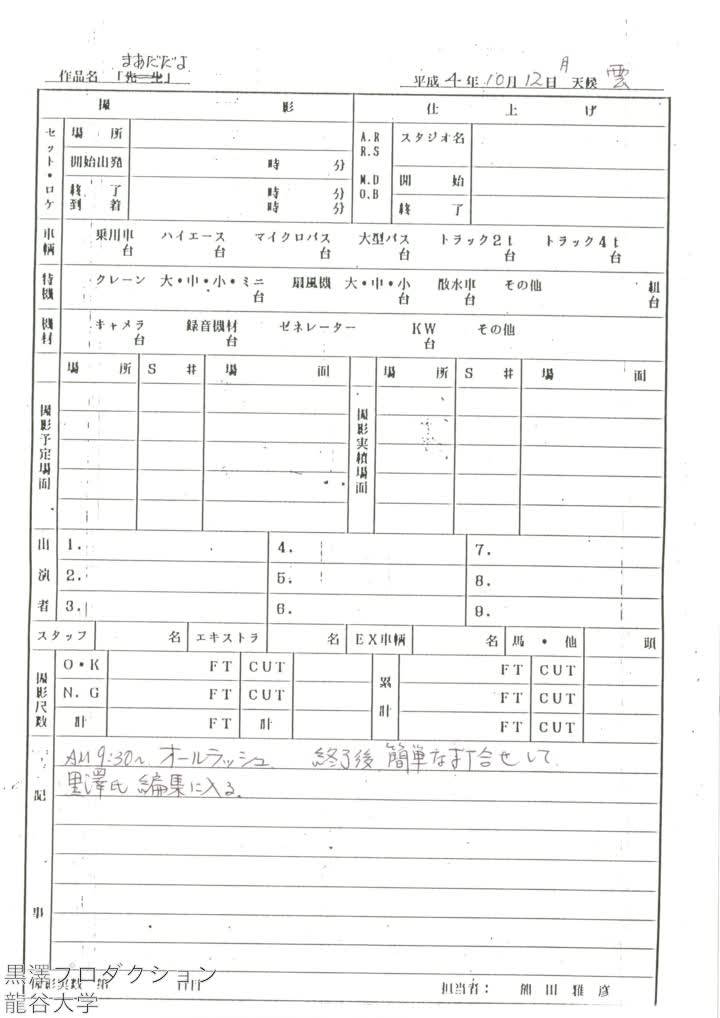 まあだだよ
作品名 「先生」 平成4年10月12日 月 天候 雲
撮影 仕上げ
セット・ロケ 場所 A.R R.S スタジオ名
開始出発 時 分 M.D O.B 開始
終了 時 分 終了
到着 時 分
車輌 乗用車 台 ハイエース 台 マイクロバス 台 大型バス 台 トラック2t 台 トラック4t 台
特機 クレーン 大・中・小・ミニ 台 扇風機 大・中・小 台 散水車 台 その他 組 台
機材 キャメラ 台 録音機材 台 ゼネレーター KW 台 その他
撮影予定場面 場所 S# 場面 撮影実績場面 場所 S# 場面
出演者 1. 4. 7.
2. 5. 8.
3. 6. 9.
スタッフ 名 エキストラ 名 EX車輌 名 馬・他 頭
撮影尺数 O・K FT CUT 累計 FT CUT
N.G FT CUT FT CUT
計 FT 計 FT CUT
記事
AM9:30〜 オールラッシュ 終了後、簡単な打合せして
黒澤氏 編集に入る。
撮影実数 第 日目 担当者: 熊田雅彦
黒澤プロダクション
龍谷大学